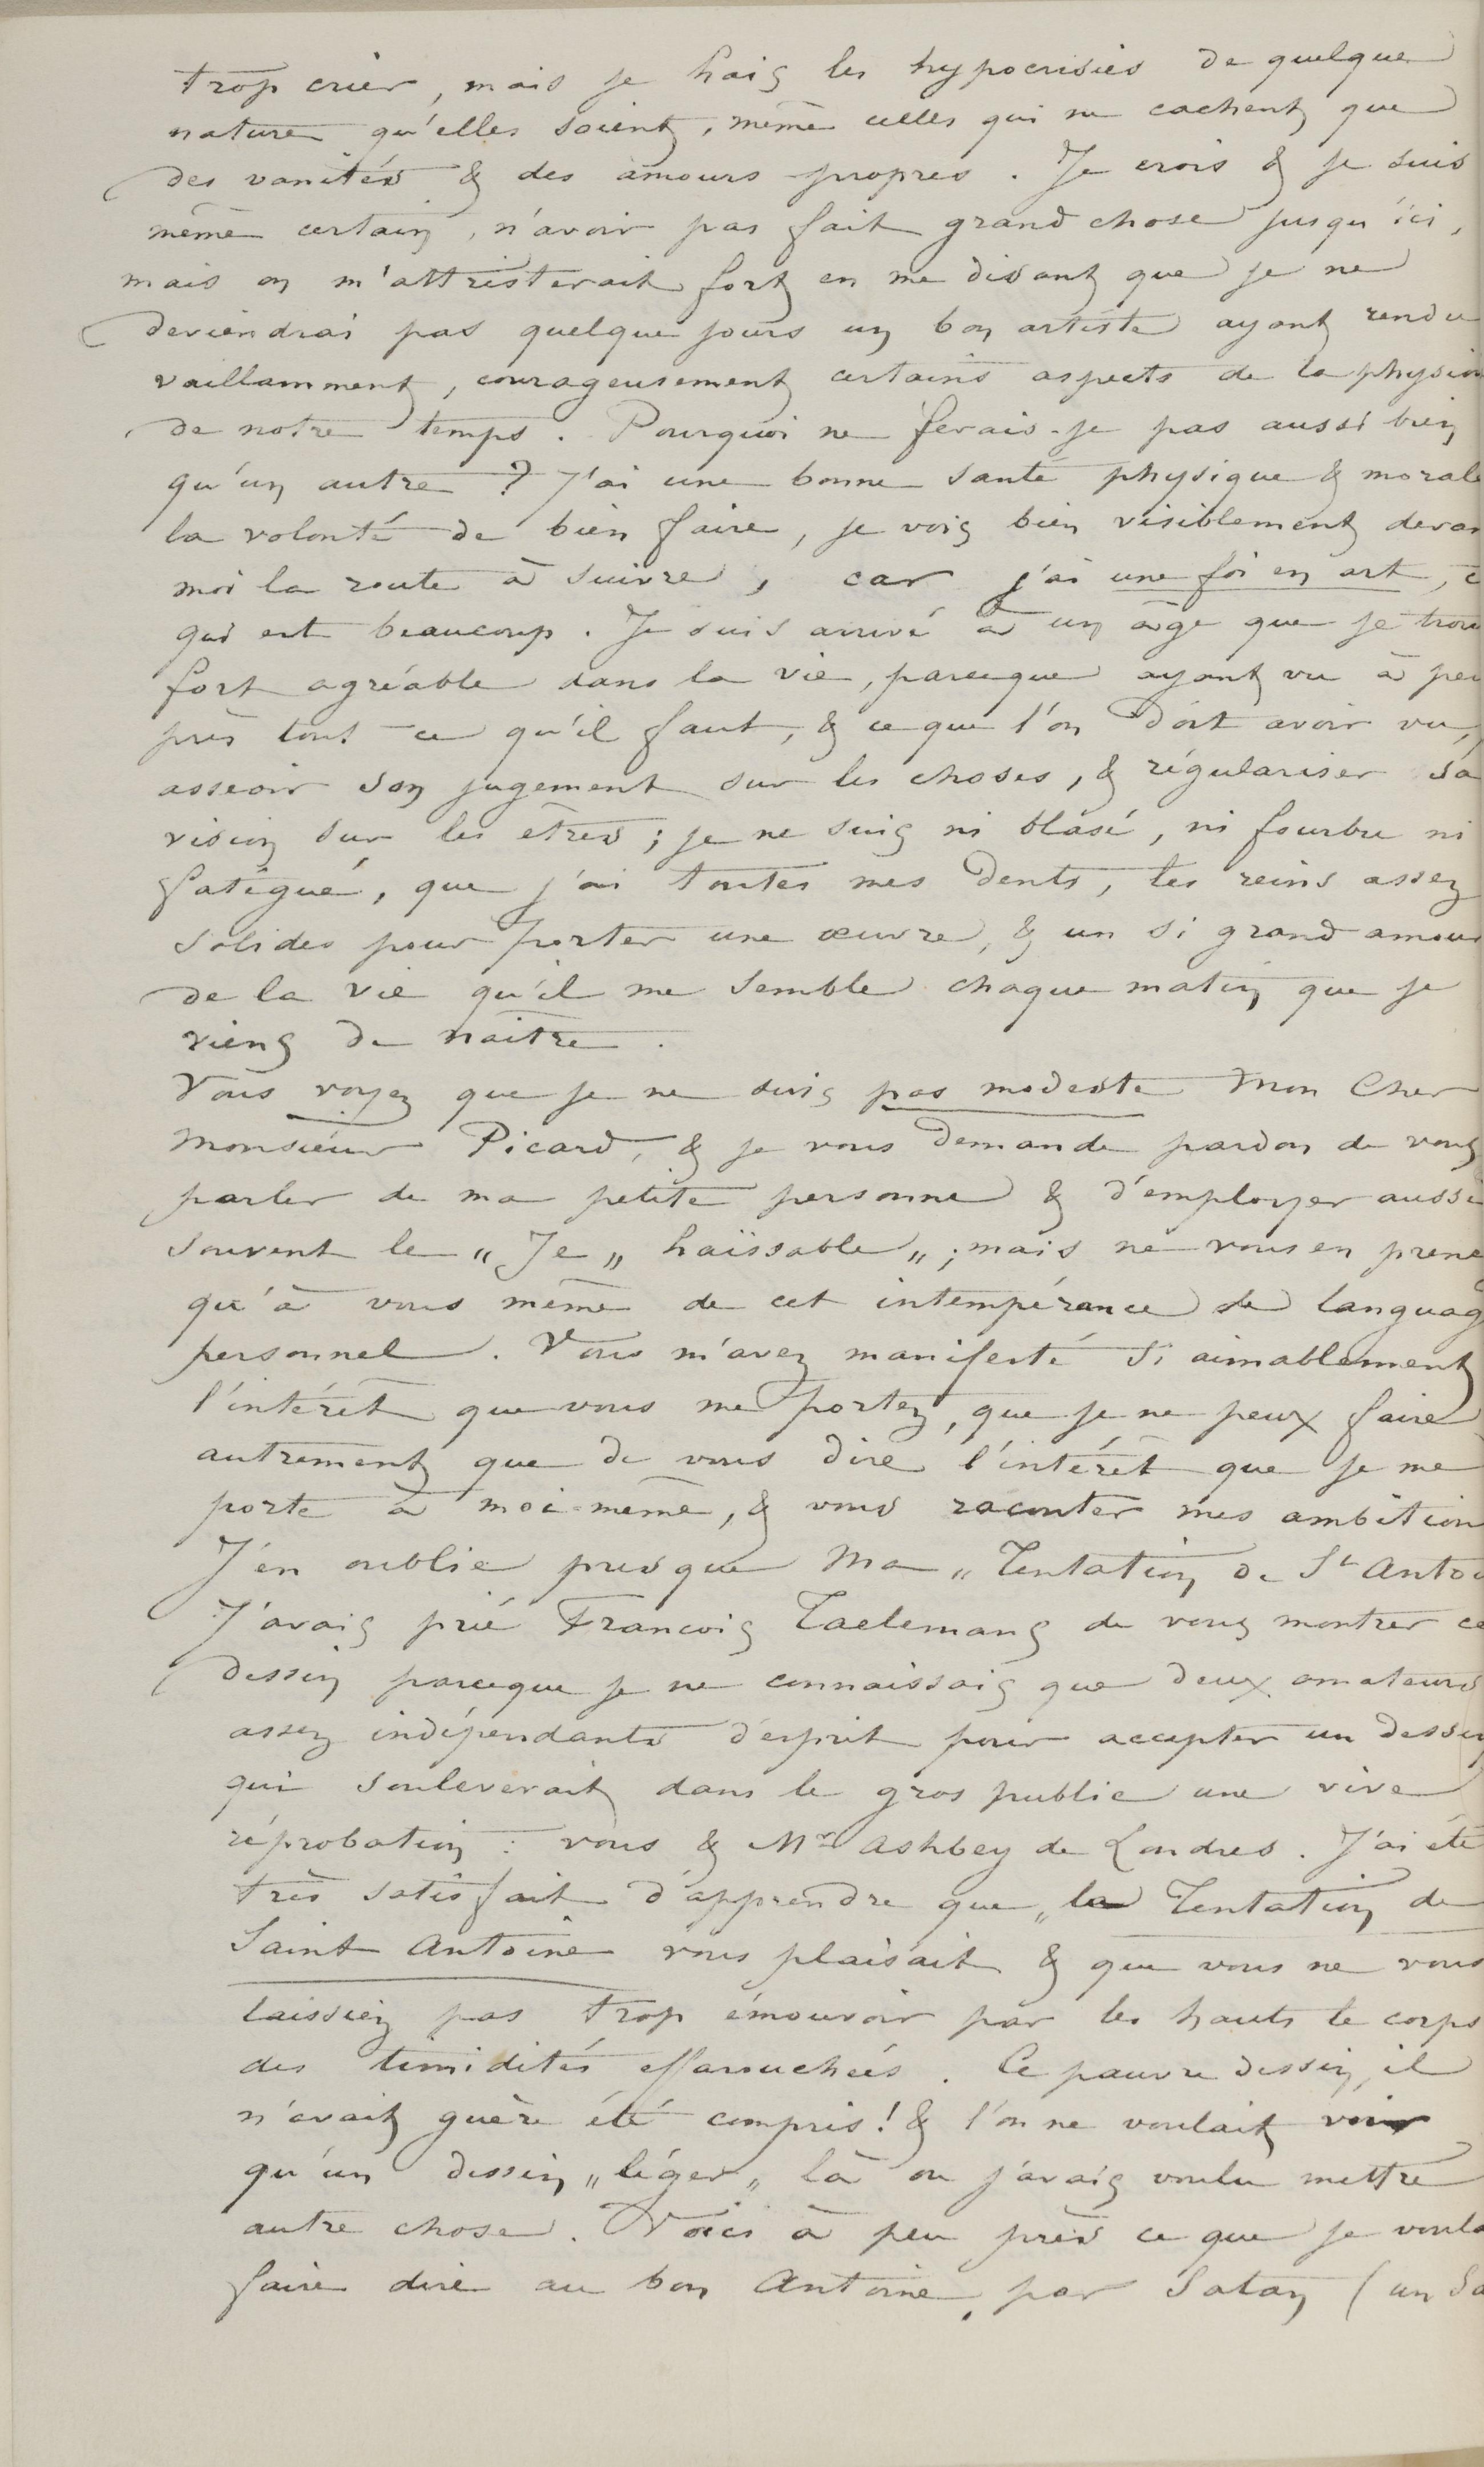 trop crier, mais je hais les hypocrisies de quelque
nature qu'elles soient, même celles qui ne cachent que
des vanités & des amours propres. Je crois & je suis
même certain, n'avoir pas fait grand chose jusqu'ici,
mais on m'attristerait fort en me disant que je ne
deviendrai pas quelque jours un bon artiste ayant rendu
vaillamment, courageusement certains aspects de la physio
de notre temps. Pourquoi ne ferais-je pas aussi bien
qu'un autre ? J'ai une bonne santé physique & morale
la volonté de bien faire, je vois bien visiblement devan
moi la route à suivre, car j'ai une foi en art, c
qui est beaucoup. Je suis arrivé à un âge que je trou
fort agréable dans la vie, parceque ayant vu à peu
près tout ce qu'il faut, & ce que l'on doit avoir vu,
asseoir son jugement sur les choses, & régulariser sa
vision sur les etres ; je ne suis ni blasé, ni fourbu ni
fatigué, que j'ai toutes mes dents, les reins assez
solides pour porter une œuvre, & un si grand amour
de la vie qu'il me semble chaque matin que je
viens de naître.
Vous voyez que je ne suis pas modeste Mon Cher
Monsieur Picard, & je vous demande pardon de vous
parler de ma petite personne & d'employer aussi
souvent le „ Je „ haïssable „ ; mais ne vous en prene
qu'à vous même de cet intempérance de languag
personnel. Vous m'avez manifesté si aimablement
l'intérêt que vous me portez, que je ne peux faire
autrement que de vous dire l'intérêt que je me
porte à moi-même, & vous raconter mes ambition
J'en oublie presque Ma „ Tentation de St Antoi
J'avais prié Francois Taelemans de vous montrer ce
dessin parceque je ne connaissais que deux amateurs
assez indépendants d'esprit pour accepter un dessin
qui souleverait dans le gros public une vive
réprobation : vous & Mr Ashbey de Londres. J'ai été
très satisfait d'apprendre que „ la Tentation de
Saint Antoine vous plaisait & que vous ne vous
laissiez pas trop émouvoir par les hauts le corps
des timidités effarouchées. Ce pauvre dessin, il
n'avait guère été compris ! & l'on ne voulait voir
qu'un dessin „ léger „ là ou j'avais voulu mettre
autre chose. Voici à peu près ce que je voula
faire dire au bon Antoine, par Satan (un Sa